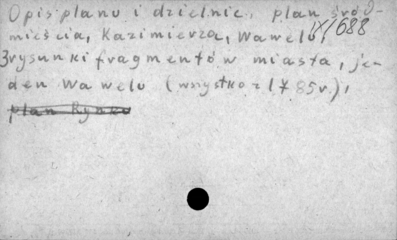 Opis planu i dzielnic, plan śród-
mieścia, Kazimierza, Wawelu,
IX/688
3 rysunki fragmentów miasta, je-
den Wawelu (wszystko z 1785 r.),
plan Rynku